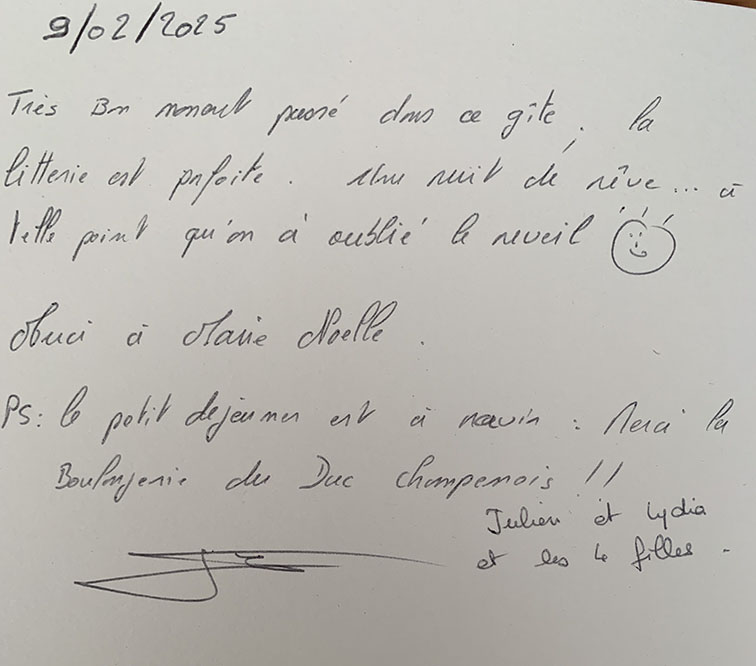 9/02/2025
Très Bon moment passé dans ce gîte, la
litterie est parfaite. Une nuit de rêve... à
telle point qu'on à oublié le reveil
Merci à Marie Noelle.
PS: le petit dejeuner est à ravir : Merci la
Boulangerie du Duc champenois !!
Julien et Lydia
et les 4 filles.